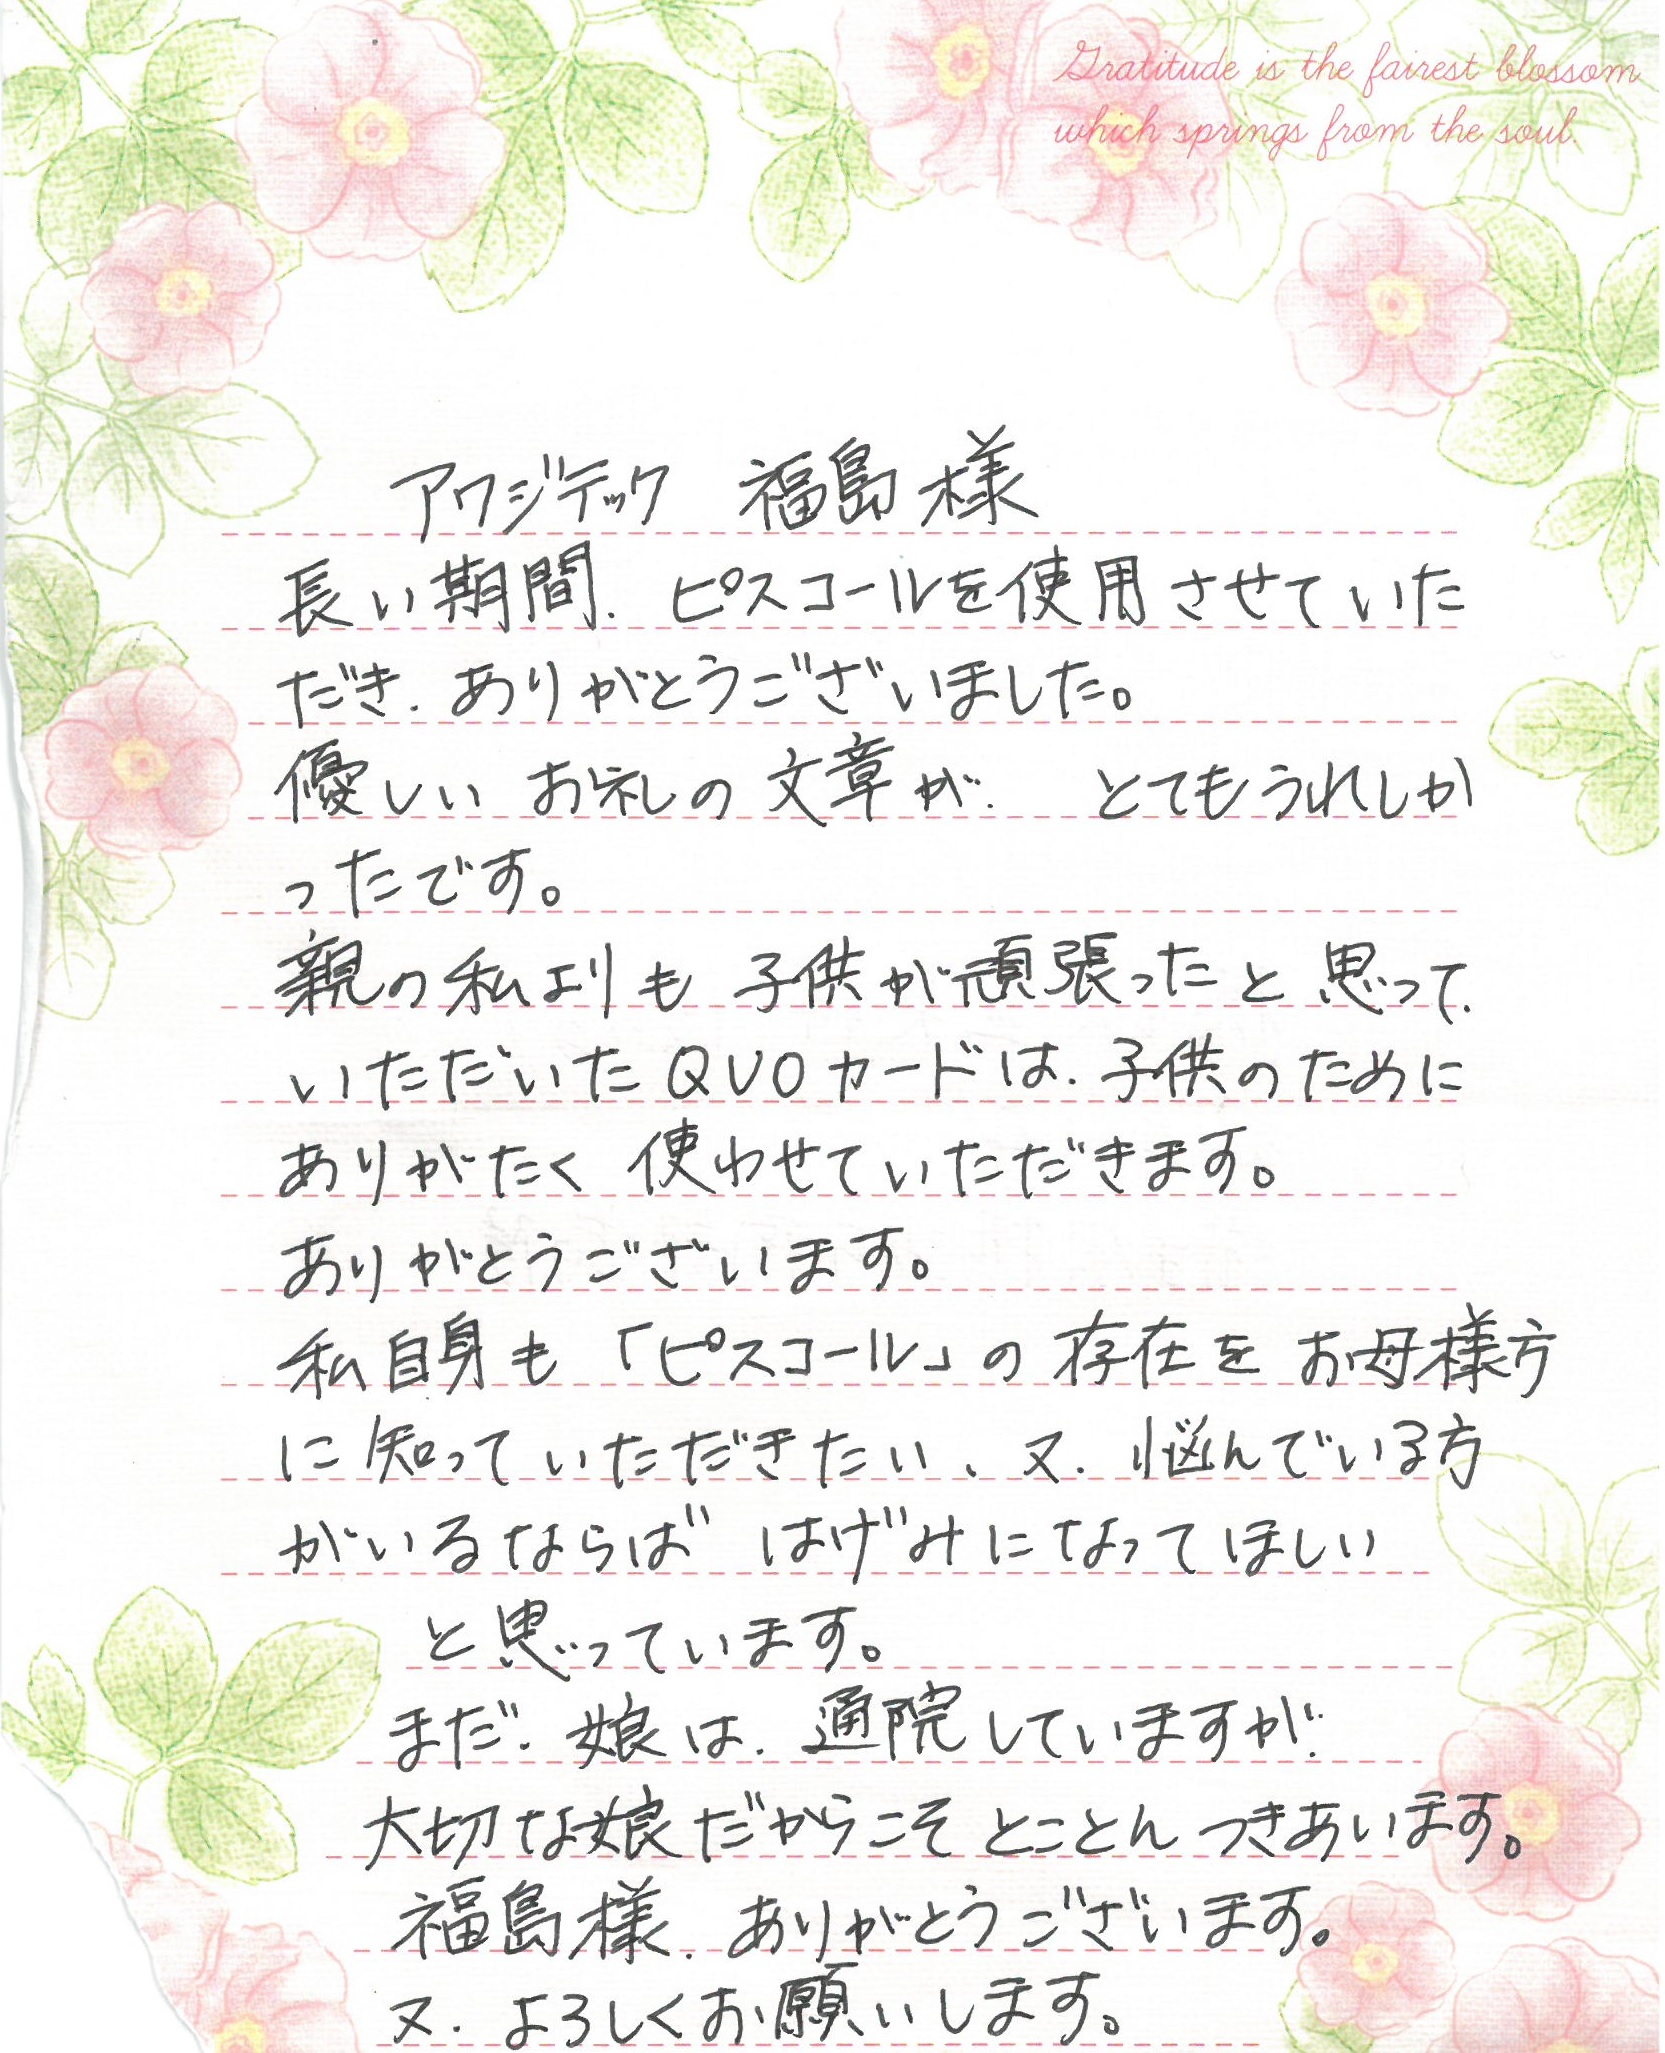 Gratitude is the fairest blossom
which springs from the soul.
アワジテック 福島様
長い期間、ピスコールを使用させていた
だき、ありがとうございました。
優しいお礼の文章が、とてもうれしか
ったです。
親の私よりも子供が頑張ったと思って、
いただいたQUOカードは、子供のために
ありがたく使わせていただきます。
ありがとうございます。
私自身も「ピスコール」の存在をお母様方
に知っていただきたい、又、悩んでいる方
がいるならばはげみになってほしい
と思っています。
まだ、娘は、通院していますが、
大切な娘だからこそとことんつきあいます。
福島様、ありがとうございます。
又、よろしくお願いします。